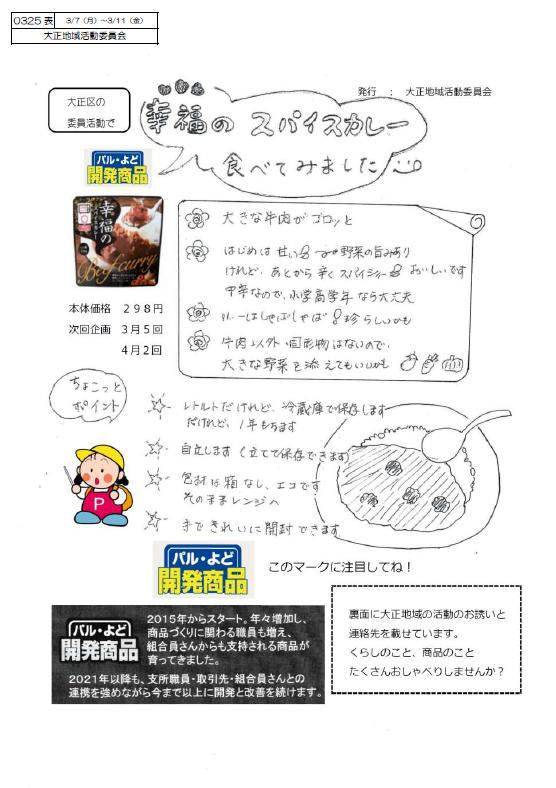 0325 表 3/7（月）～3/11（金）
大正地域活動委員会
発行 ： 大正地域活動委員会
大正区の
委員活動で
幸福の スパイスカレー
食べてみました
パル・よど
開発商品
幸福の
スパイスカレー
Beef curry
本体価格 298円
次回企画 3月5回
4月2回
大きな牛肉がゴロッと
はじめは 野菜の旨みあり
けれど、あとから辛くスパイシー おいしいです
中辛なので、小学高学年なら大丈夫
しゃばしゃば 珍らしいかも
牛肉以外固形物はないので、
大きな野菜を添えてもいいかも
ちょこっと
ポイント
レトルトだけれど、冷蔵庫で保存します
だけれど、1年もちます
自立します（立てて保存できます）
包材は箱なし、エコです
そのままレンジへ
手できれいに開封できます
P
パル・よど
開発商品
このマークに注目してね！
パル・よど
開発商品
2015年からスタート。年々増加し、
商品づくりに関わる職員も増え、
組合員さんからも支持される商品が
育ってきました。
2021年以降も、支所職員・取引先・組合員さんとの
連携を強めながら今まで以上に開発と改善を続けます。
裏面に大正地域の活動のお誘いと
連絡先を載せています。
くらしのこと、商品のこと
たくさんおしゃべりしませんか？